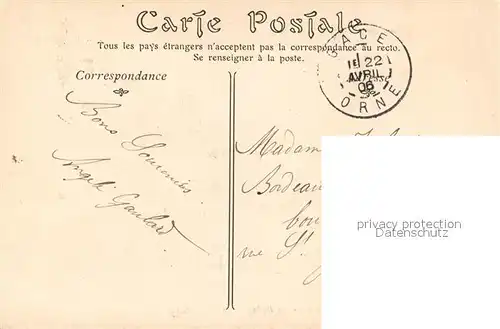 Carte Postale
Tous les pays étrangers n'acceptent pas la correspondance au recto.
Se renseigner à la poste.
Correspondance
GACE
1E 22
AVRIL
06
ORNE
Bons Souvenirs
Angèle Gaulard
Madame
Bordeaux
rue St
privacy protection
Datenschutz